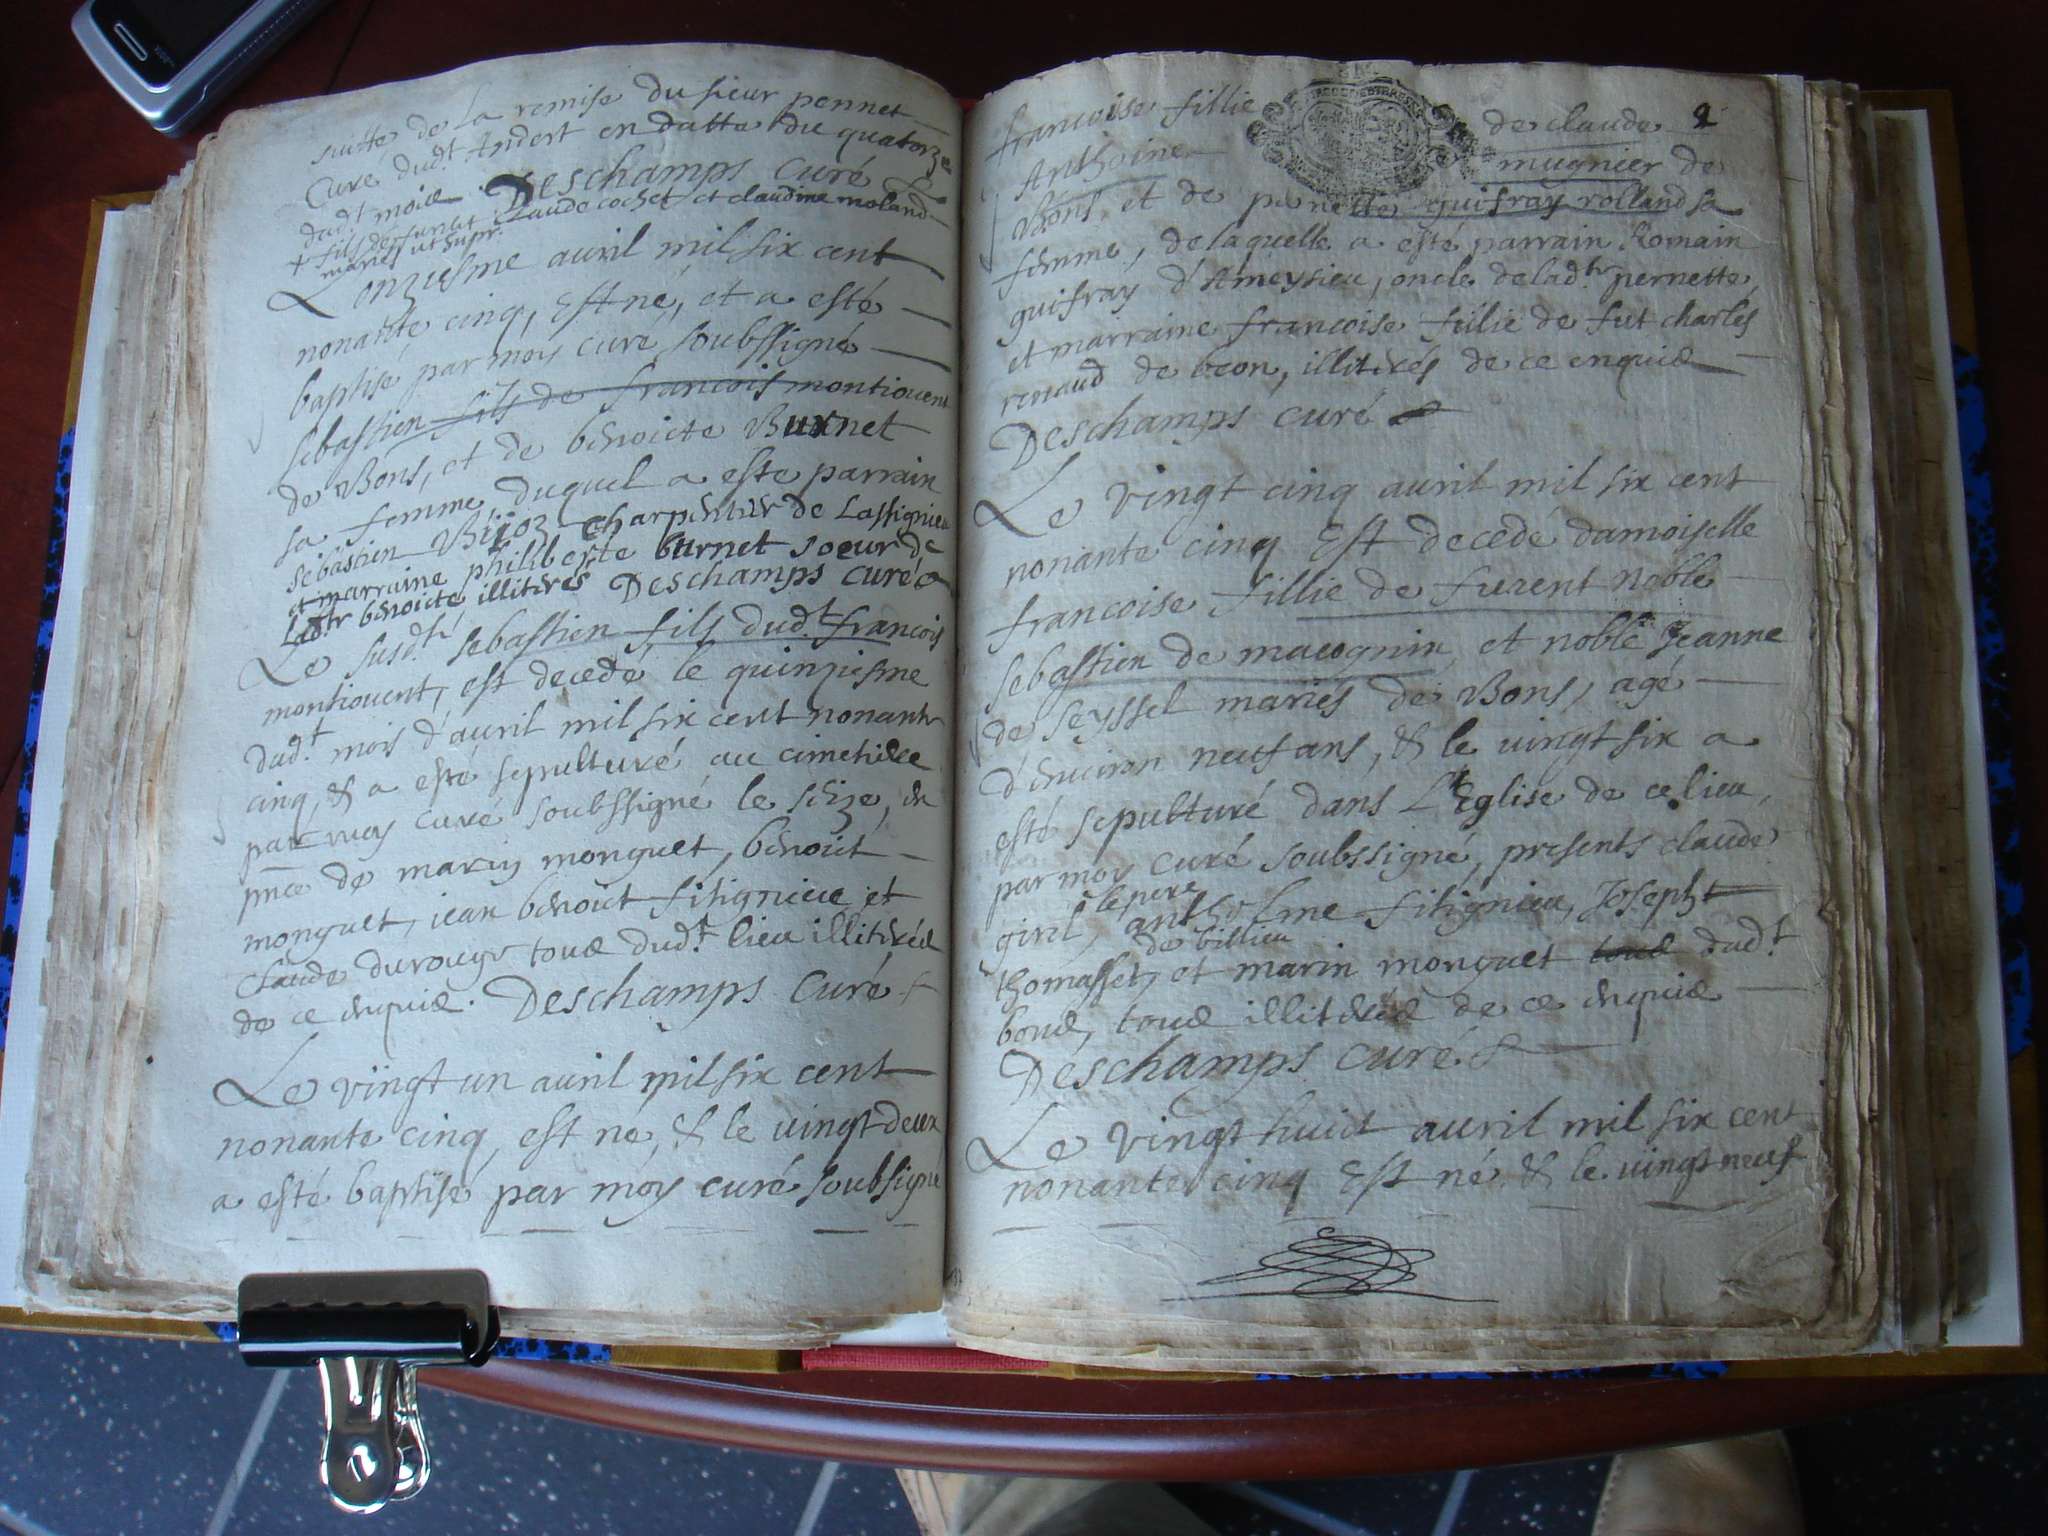 suitte de La remise du sieur pennet
Curé dud.t Andert en datte du quatorze
dud.t mois Deschamps Curé
+ fils de Claude cochet et claudine moland
mariés ut supr.
L onziesme auril mil six cent
nonante cinq, Est né, et a esté
baptisé par moy curé soubssigné
sebastien fils de francois montiouent
de Bons, et de benoicte Burnet
sa femme duquel a este parrain
sebastien charpentier de Lassignieu
et marraine philiberte burnet soeur de
Ladte benoicte, illiterés Deschamps Curé
Le susd.t sebastien fils dud.t francois
montiouent, est decedé le quinziesme
dud.t mois d'auril mil six cent nonante
cinq, & a esté sepulturé au cimetiere
par moy curé soubssigné le seize, en
pnce de marin monguet, benoit
monguet, iean benoit fitignieu et
Claude tous dud.t lieu illiterés
de ce enquis. Deschamps Curé
Le vingt un auril mil six cent
nonante cinq, est né, & le uingt deux
a esté baptisé par moy curé soubsigné
francoise fillie de claude 2
Anthoine mugnier de
Bons, et de pernette guifray rolland sa
femme, de laquelle a esté parrain Romain
guifray d'Ameysieu, oncle de lad.te pernette,
et marraine francoise fillie de fut charles
renaud de beon, illiterés de ce enquis
Deschamps curé
Le vingt cinq auril mil six cent
nonante cinq Est decedé damoiselle
francoise fillie de furent noble
sebastien de macognin, et noble Jeanne
de seyssel mariés de Bons, agé
d'enuiron neuf ans, & le uingt six a
esté sepulturé dans L'Eglise de ce lieu,
par moy curé soubssigné, presents claude
le pere
girel, anthelme fitignieu, Joseph
de billieu
thomasset, et marin monguet tous dud.t
bons, tous illiterés de ce enquis
Deschamps curé.
Le vingt huict auril mil six cent
nonante cinq Est né & le uingt neuf